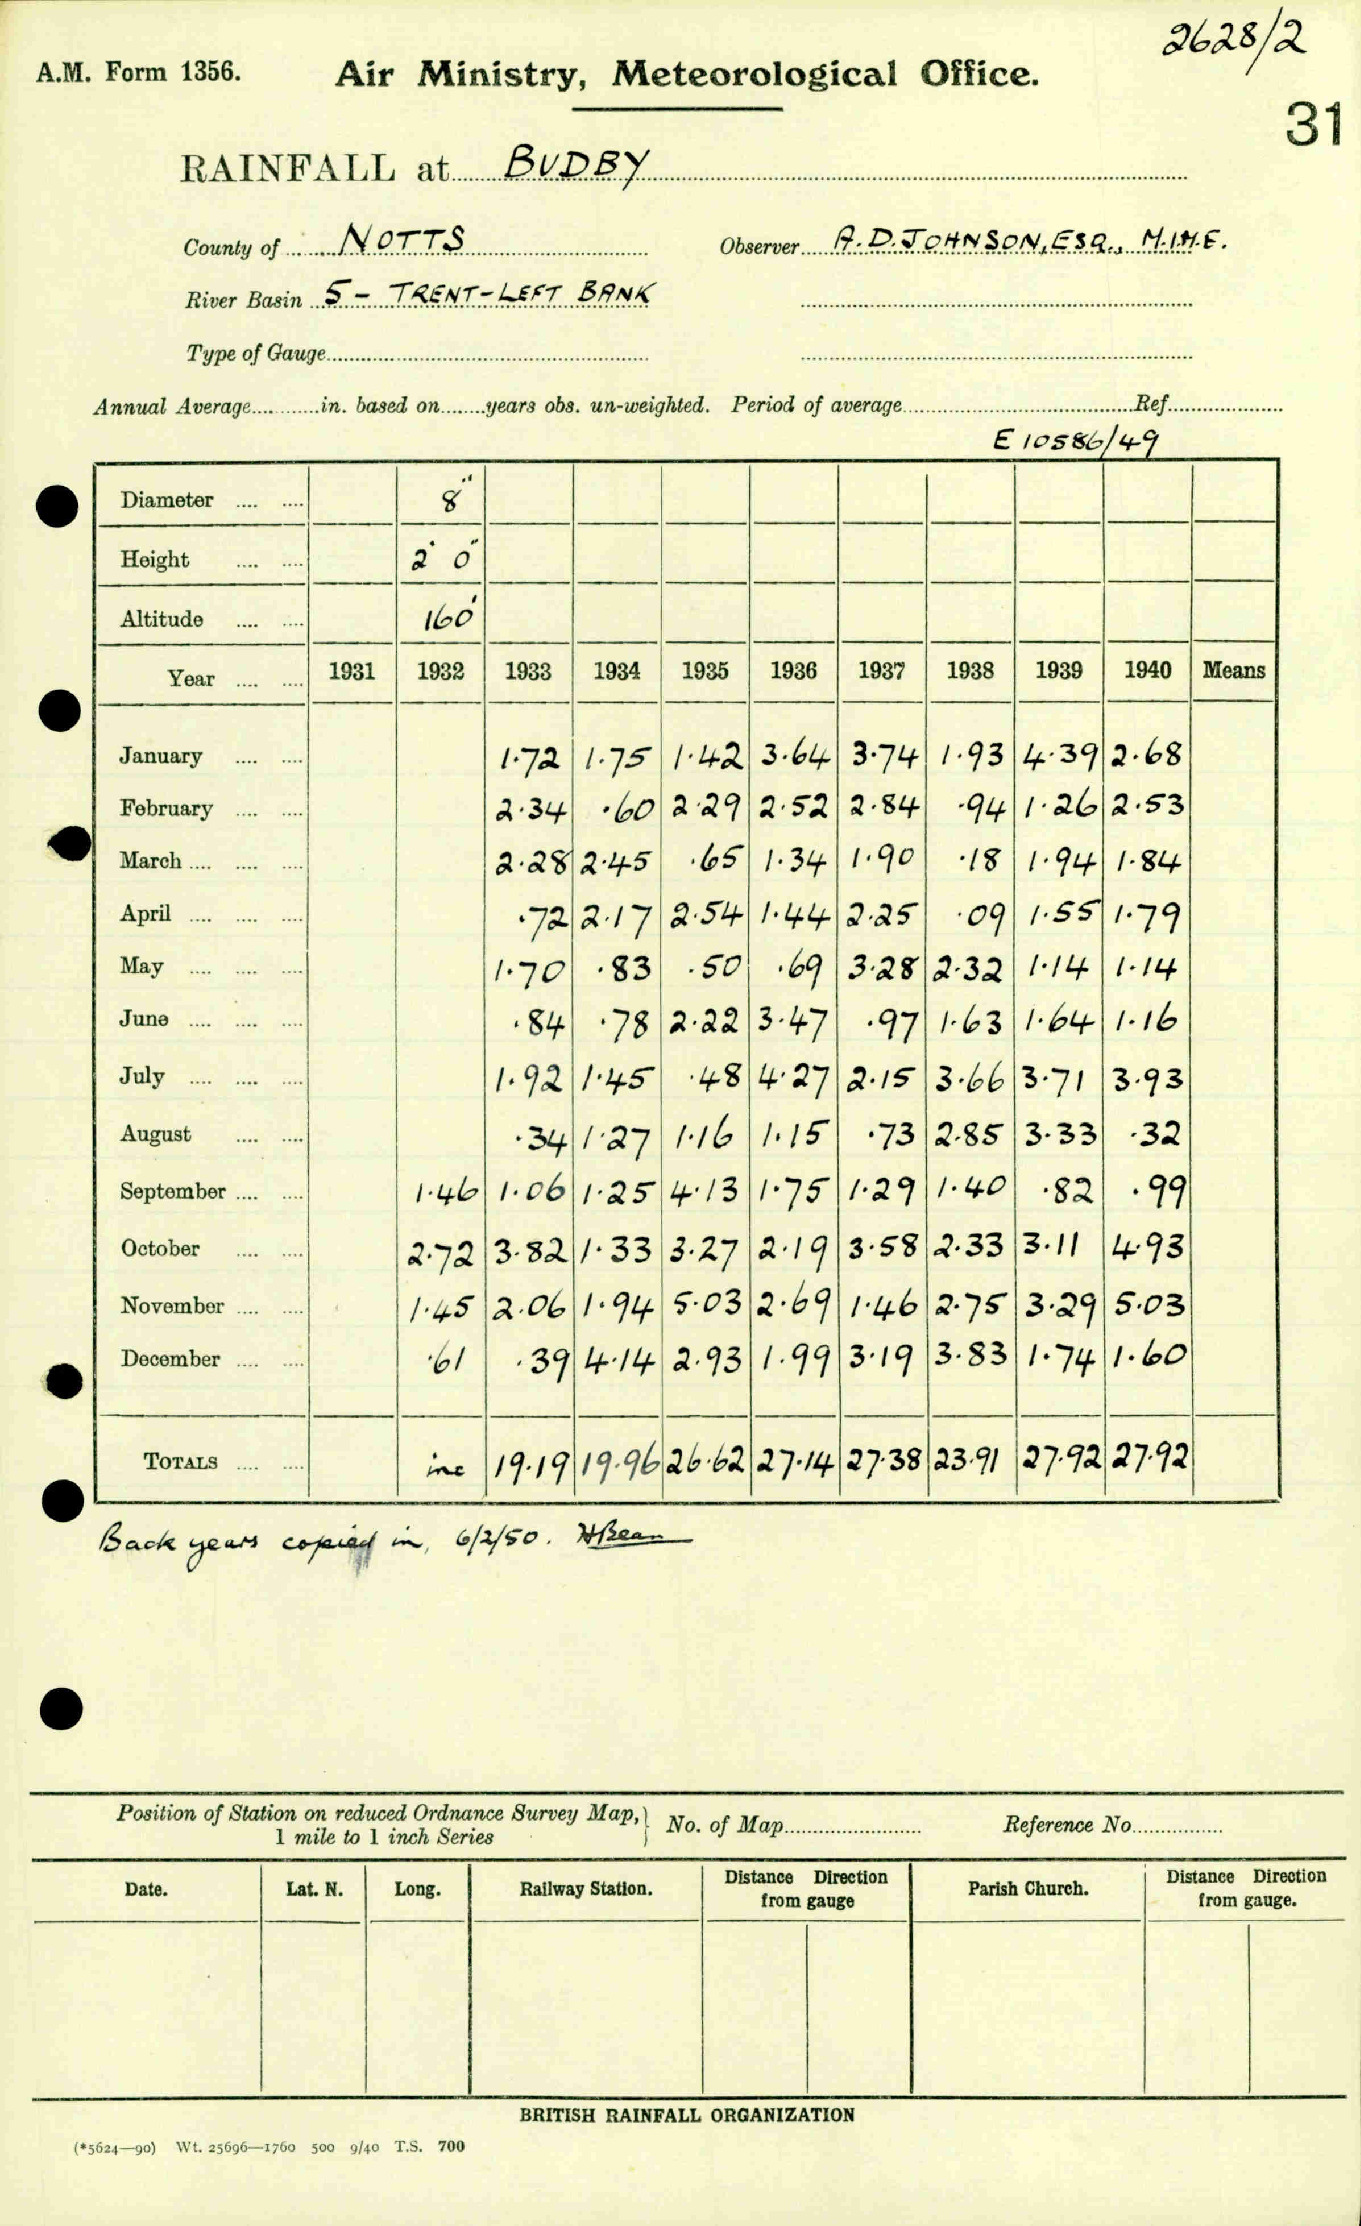 2628/2
A.M. Form 1356. Air Ministry, Meteorological Office.
31
RAINFALL at BUDBY
County of NOTTS Observer A.D. JOHNSON, ESQ., M.I.H.E.
River Basin 5 - TRENT-LEFT BANK
Type of Gauge
Annual Average in. based on years obs. un-weighted. Period of average Ref
E 10586/49
Diameter 8"
Height 2' 0"
Altitude 160'
Year 1931 1932 1933 1934 1935 1936 1937 1938 1939 1940 Means
January 1.72 1.75 1.42 3.64 3.74 1.93 4.39 2.68
February 2.34 .60 2.29 2.52 2.84 .94 1.26 2.53
March 2.28 2.45 .65 1.34 1.90 .18 1.94 1.84
April .72 2.17 2.54 1.44 2.25 .09 1.55 1.79
May 1.70 .83 .50 .69 3.28 2.32 1.14 1.14
June .84 .78 2.22 3.47 .97 1.63 1.64 1.16
July 1.92 1.45 .48 4.27 2.15 3.66 3.71 3.93
August .34 1.27 1.16 1.15 .73 2.85 3.33 .32
September 1.46 1.06 1.25 4.13 1.75 1.29 1.40 .82 .99
October 2.72 3.82 1.33 3.27 2.19 3.58 2.33 3.11 4.93
November 1.45 2.06 1.94 5.03 2.69 1.46 2.75 3.29 5.03
December .61 .39 4.14 2.93 1.99 3.19 3.83 1.74 1.60
TOTALS inc 19.19 19.96 26.62 27.14 27.38 23.91 27.92 27.92
Back years copied in, 6/2/50. HBean
Position of Station on reduced Ordnance Survey Map, 1 mile to 1 inch Series } No. of Map Reference No
Date. Lat. N. Long. Railway Station. Distance Direction from gauge Parish Church. Distance Direction from gauge.
BRITISH RAINFALL ORGANIZATION
(*5624—90) Wt. 25696—1760 500 9/40 T.S. 700